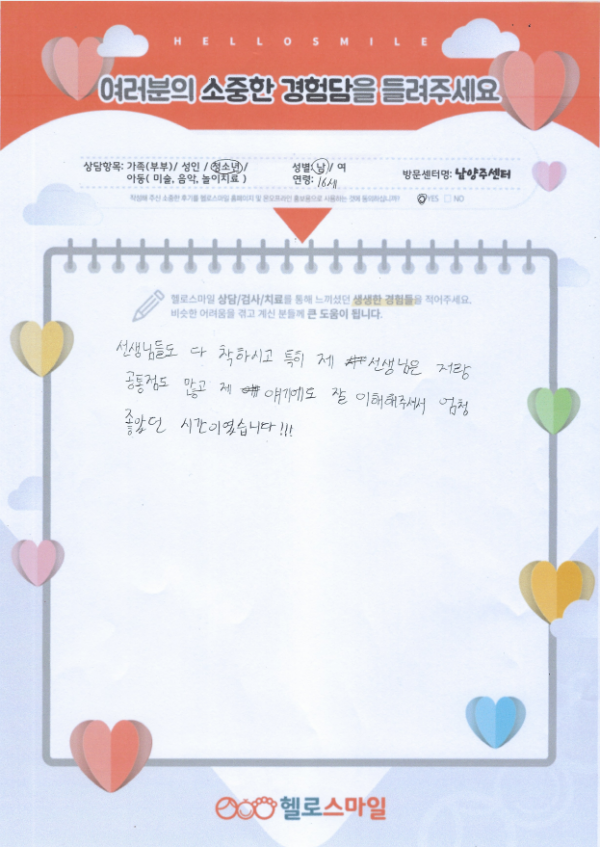 HELLOSMILE
여러분의 소중한 경험담을 들려주세요
상담항목: 가족(부부)/ 성인 / 청소년/
아동( 미술, 음악, 놀이치료 )
성별: 남 / 여
연령: 16세
방문센터명: 남양주센터
작성해 주신 소중한 후기를 헬로스마일 홈페이지 및 온오프라인 홍보용으로 사용하는 것에 동의하십니까? YES NO
헬로스마일 상담/검사/치료를 통해 느끼셨던 생생한 경험들을 적어주세요.
비슷한 어려움을 겪고 계신 분들께 큰 도움이 됩니다.
선생님들도 다 착하시고 특히 제 선생님은 저랑
공통점도 많고 제 얘기에도 잘 이해해주셔서 엄청
좋았던 시간이였습니다!!!
헬로스마일